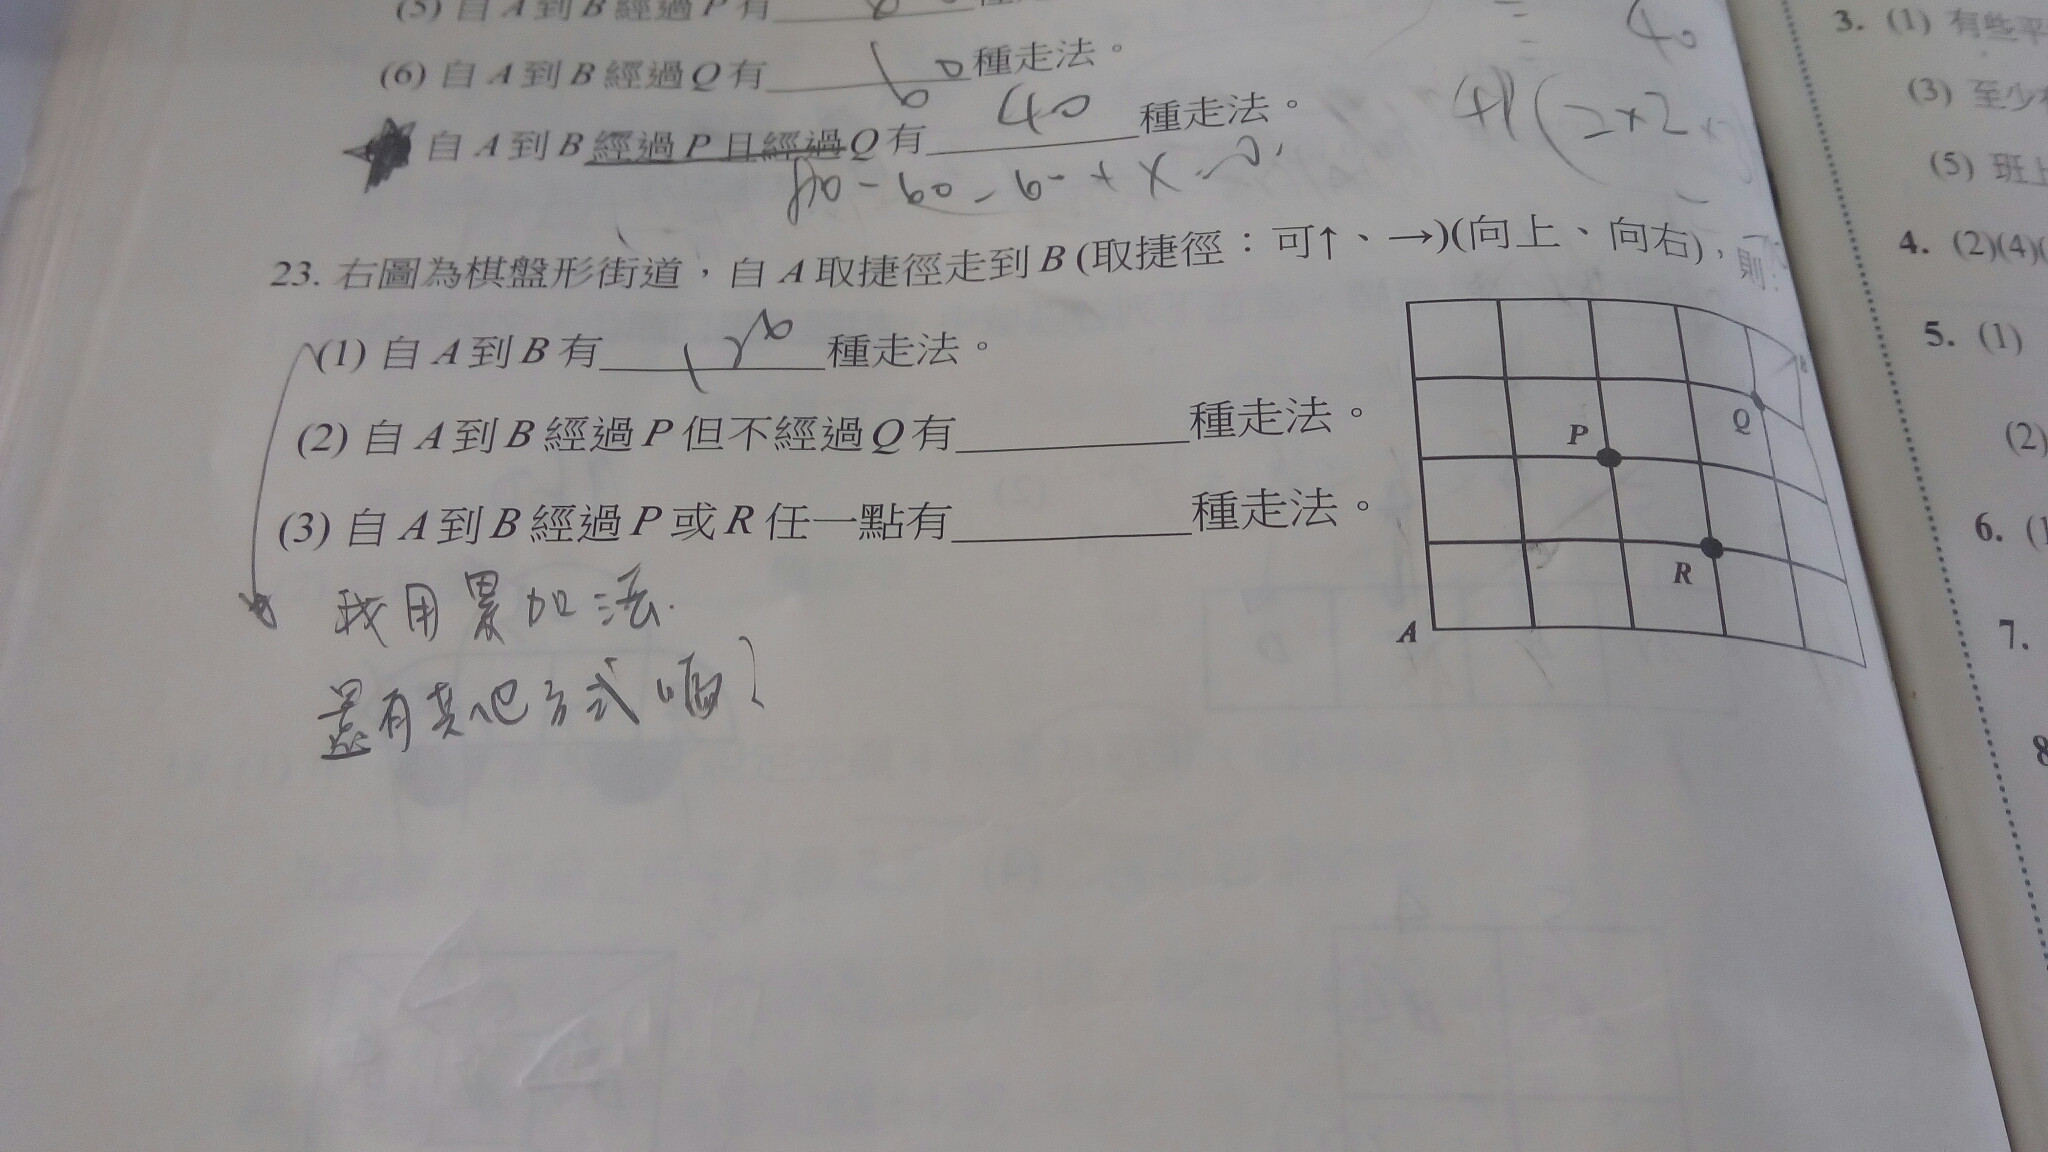 (5) 自 A 到 B 經過 P 有
(6) 自 A 到 B 經過 Q 有 60 種走法。
自 A 到 B 經過 P 且經過 Q 有 40 種走法。
23. 右圖為棋盤形街道，自 A 取捷徑走到 B (取捷徑：可↑、→)(向上、向右)，則：
(1) 自 A 到 B 有 種走法。
(2) 自 A 到 B 經過 P 但不經過 Q 有 種走法。
(3) 自 A 到 B 經過 P 或 R 任一點有 種走法。
我用累加法.
還有其他方式嗎?
B
Q
P
R
A
40
3. (1) 有些平
(3) 至少
(5) 班上
4. (2)(4)(
5. (1)
(2)
6. (1
7.
8